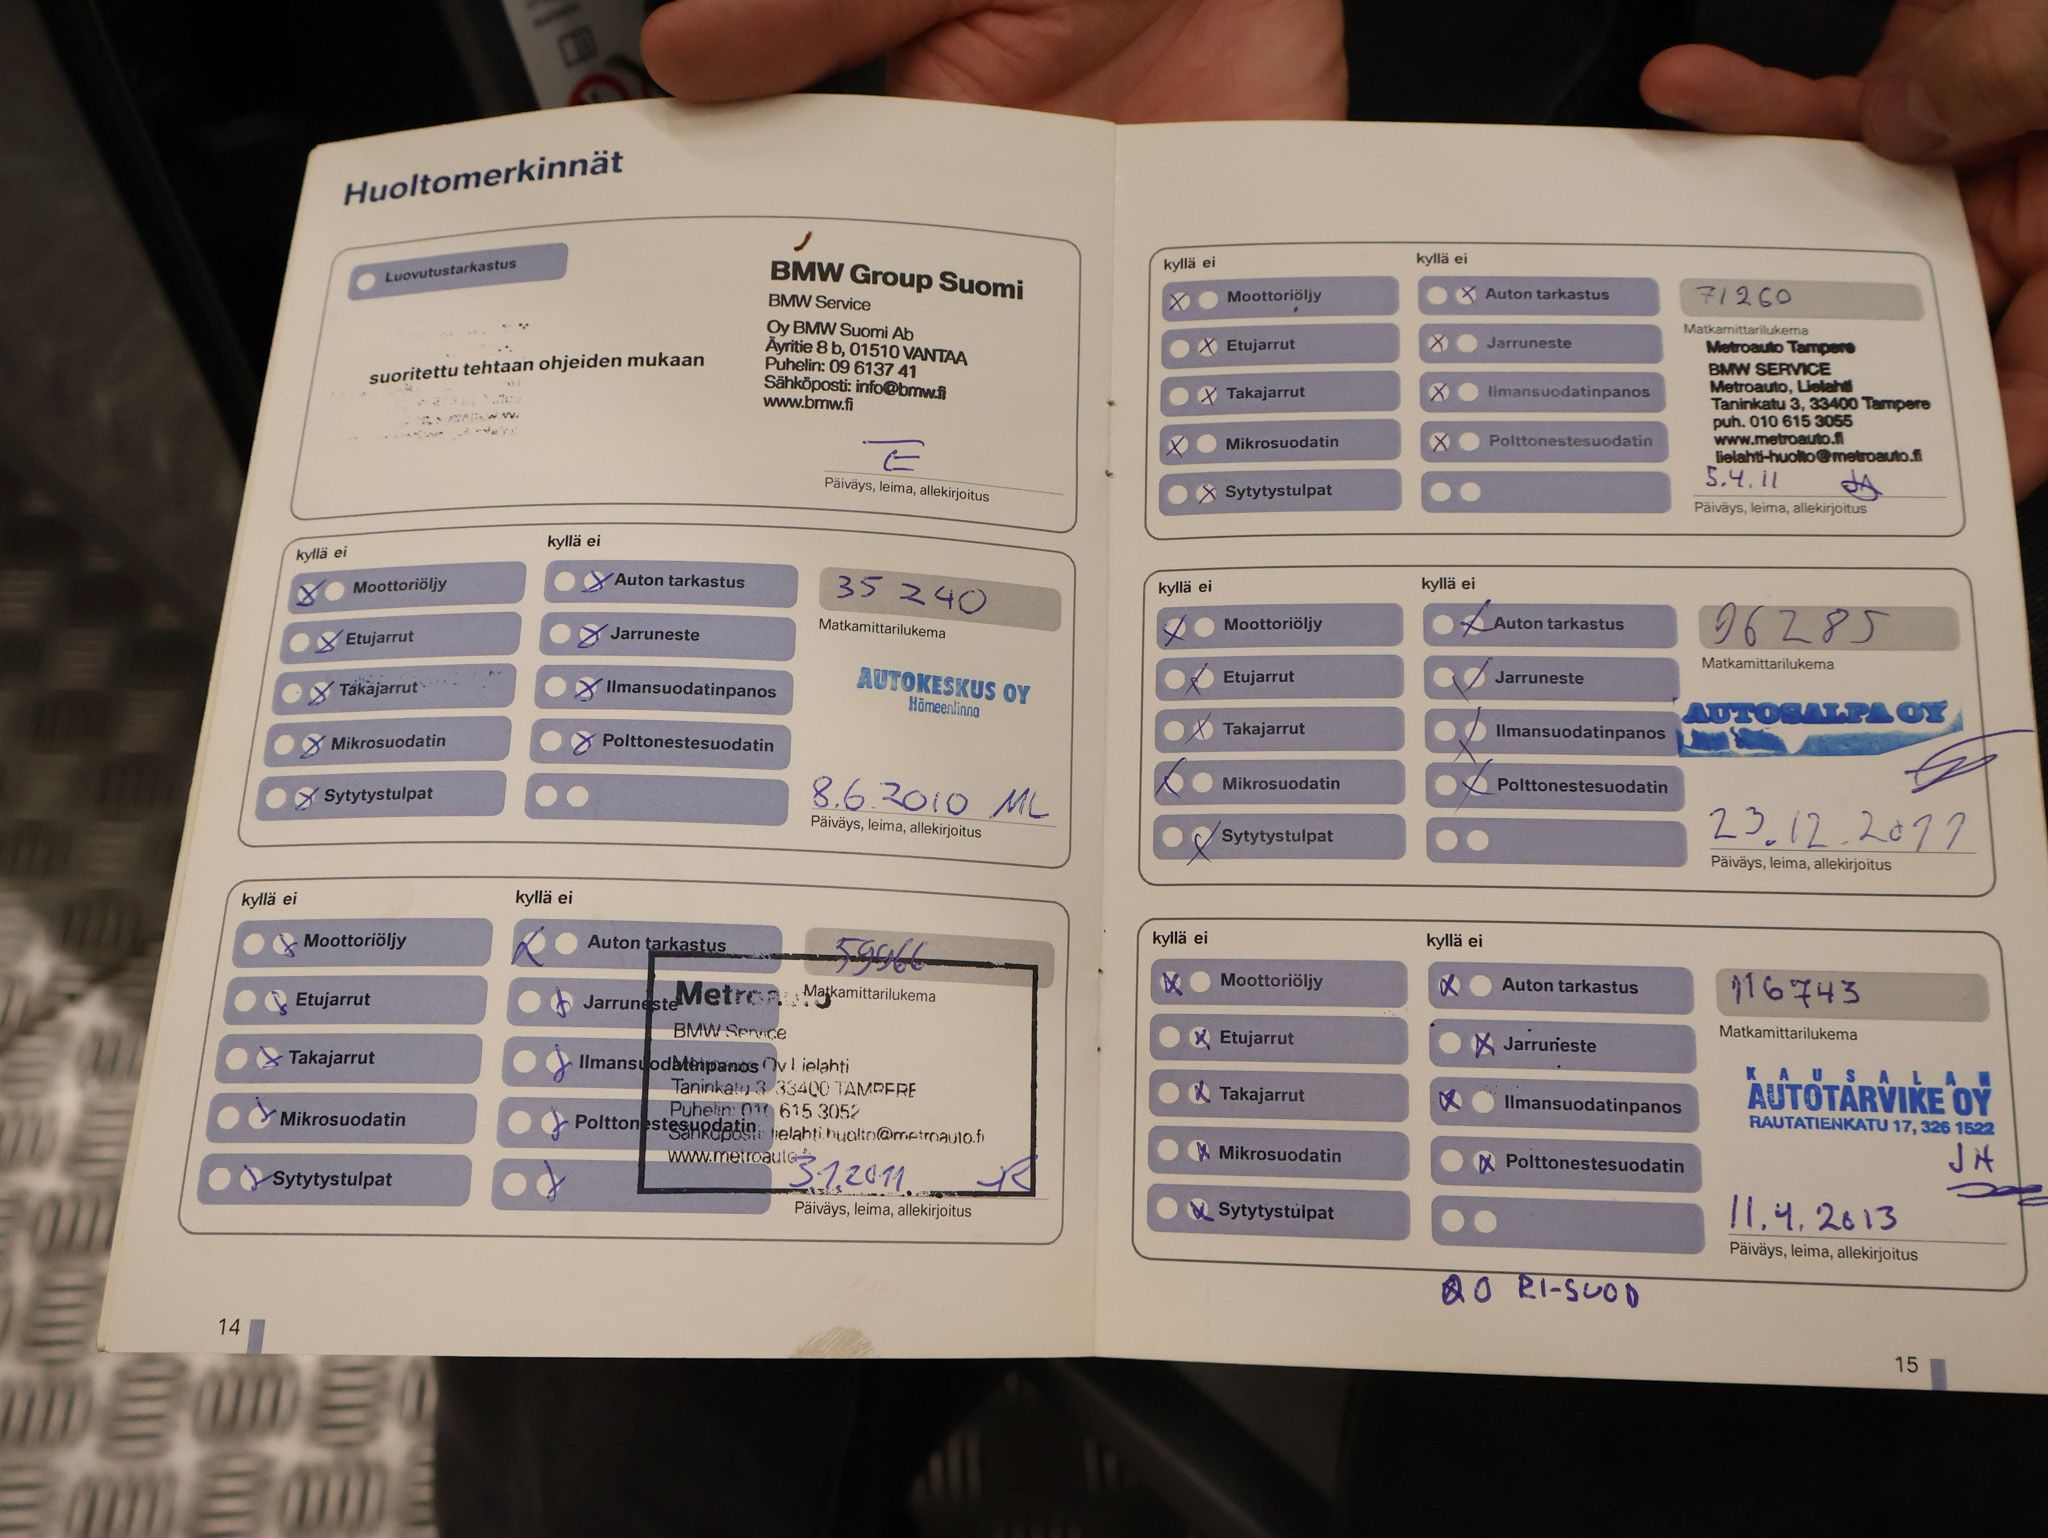 Huoltomerkinnät
Luovutustarkastus
suoritettu tehtaan ohjeiden mukaan
BMW Group Suomi
BMW Service
Oy BMW Suomi Ab
Äyritie 8 b, 01510 VANTAA
Puhelin: 09 6137 41
Sähköposti: info@bmw.fi
www.bmw.fi
Päiväys, leima, allekirjoitus
kyllä ei
kyllä ei
Moottoriöljy
Auton tarkastus
35 240
Etujarrut
Jarruneste
Matkamittarilukema
Takajarrut
Ilmansuodatinpanos
AUTOKESKUS OY
Hämeenlinna
Mikrosuodatin
Polttonestesuodatin
Sytytystulpat
8.6.2010 ML
Päiväys, leima, allekirjoitus
kyllä ei
kyllä ei
Moottoriöljy
Auton tarkastus
59966
Etujarrut
Jarruneste
Matkamittarilukema
Metroauto
BMW Service
Takajarrut
Ilmansuodatinpanos
Metroauto Oy Lielahti
Taninkatu 3 33400 TAMPERE
Mikrosuodatin
Polttonestesuodatin
Puhelin: 010 615 3052
Sähköposti: lielahti.huolto@metroauto.fi
www.metroauto.fi
Sytytystulpat
3.1.2011
Päiväys, leima, allekirjoitus
14
kyllä ei
kyllä ei
Moottoriöljy
Auton tarkastus
71260
Etujarrut
Jarruneste
Matkamittarilukema
Metroauto Tampere
BMW SERVICE
Takajarrut
Ilmansuodatinpanos
Metroauto, Lielahti
Taninkatu 3, 33400 Tampere
puh. 010 615 3055
Mikrosuodatin
Polttonestesuodatin
www.metroauto.fi
lielahti-huolto@metroauto.fi
Sytytystulpat
5.4.11
Päiväys, leima, allekirjoitus
kyllä ei
kyllä ei
Moottoriöljy
Auton tarkastus
96285
Etujarrut
Jarruneste
Matkamittarilukema
Takajarrut
Ilmansuodatinpanos
AUTOSALPA OY
Mikrosuodatin
Polttonestesuodatin
Sytytystulpat
23.12.2011
Päiväys, leima, allekirjoitus
kyllä ei
kyllä ei
Moottoriöljy
Auton tarkastus
116743
Etujarrut
Jarruneste
Matkamittarilukema
Takajarrut
Ilmansuodatinpanos
KAUSALAN
AUTOTARVIKE OY
RAUTATIENKATU 17, 326 1522
Mikrosuodatin
Polttonestesuodatin
JH
Sytytystulpat
11.4.2013
Päiväys, leima, allekirjoitus
RI-SUOD
15